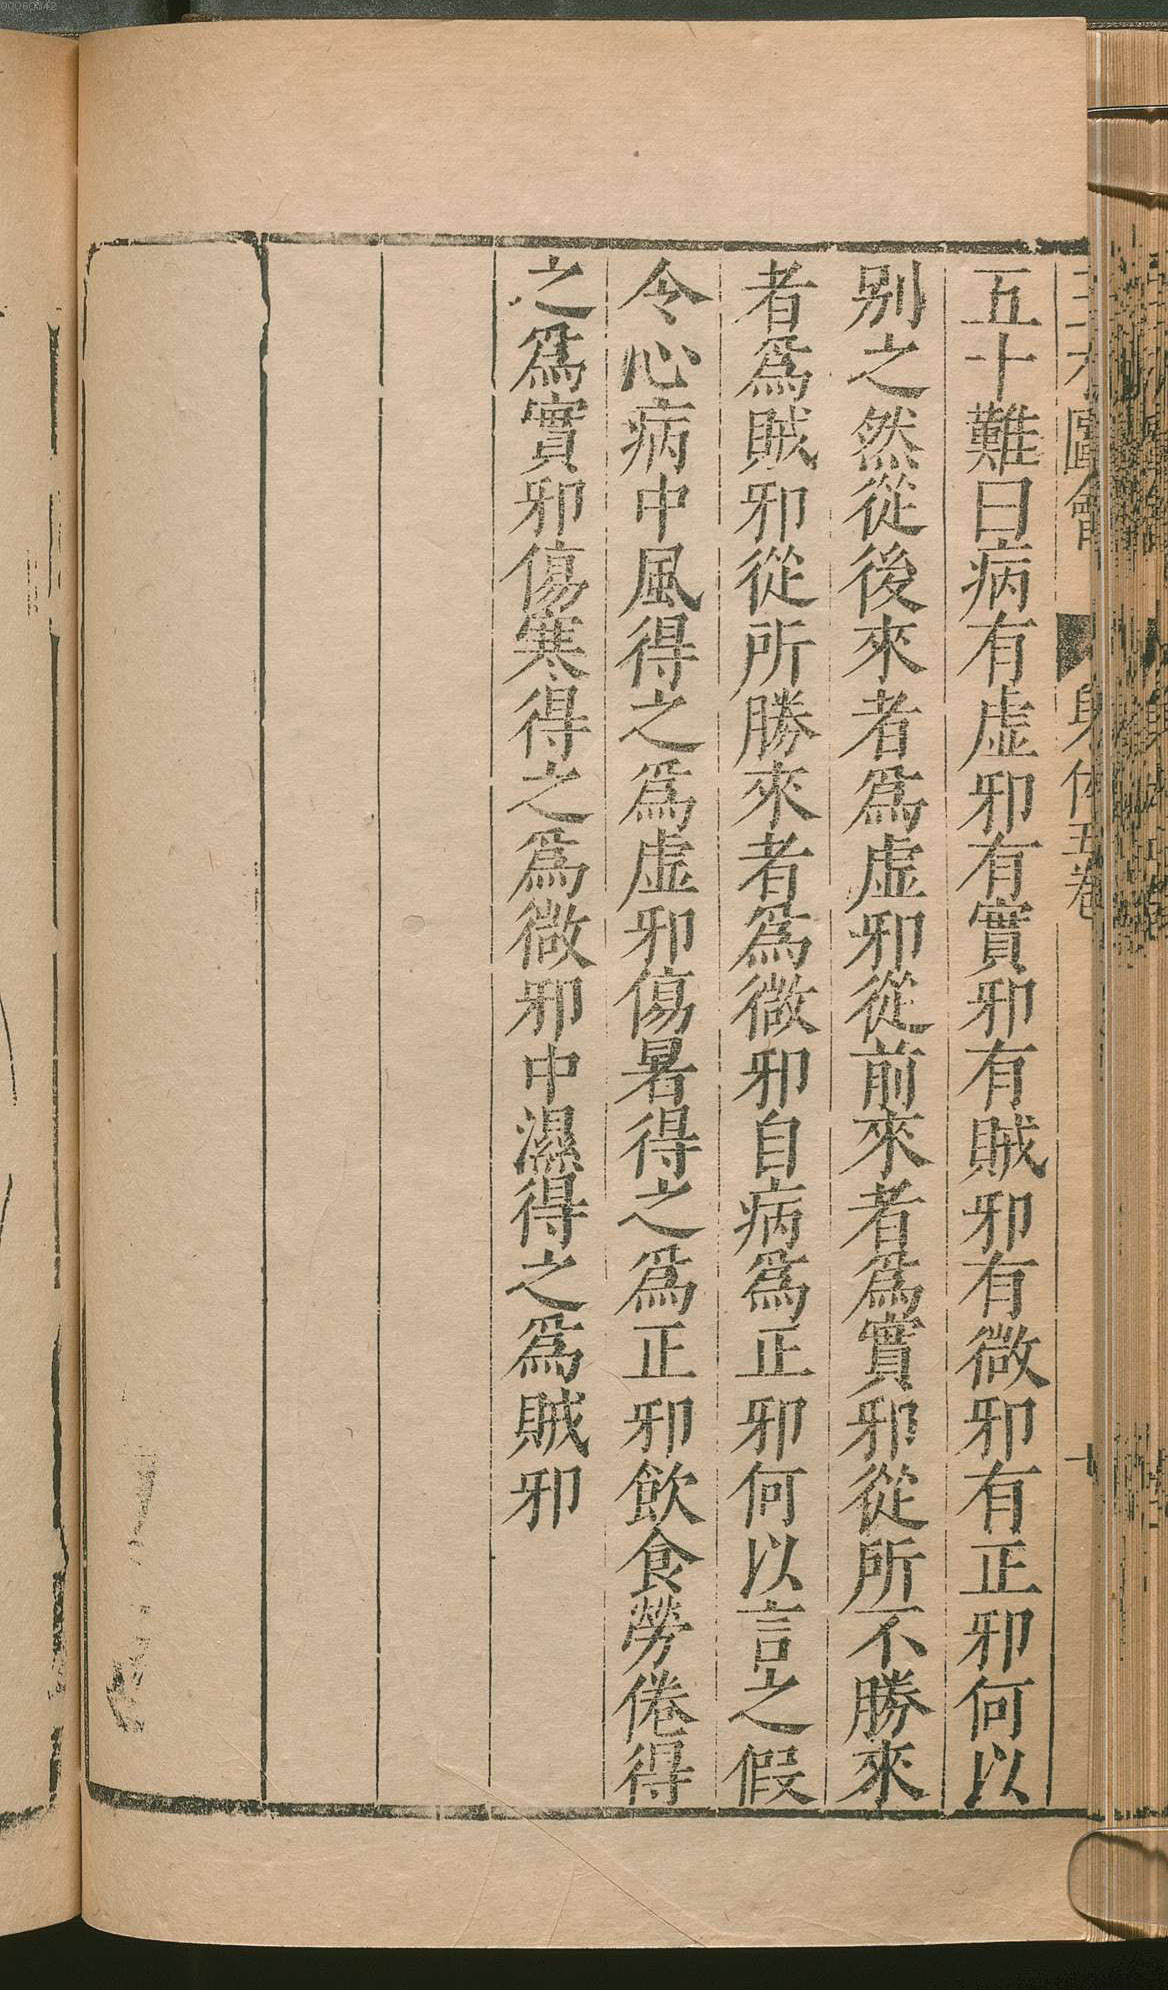 五十難曰病有虛邪有實邪有賊邪有微邪有正邪何以
別之然從後來者爲虛邪從前來者爲實邪從所不勝來
者爲賊邪從所勝來者爲微邪自病爲正邪何以言之假
令心病中風得之爲虛邪傷暑得之爲正邪飲食勞倦得
之爲實邪傷寒得之爲微邪中濕得之爲賊邪
圖會
身体五卷
00060042